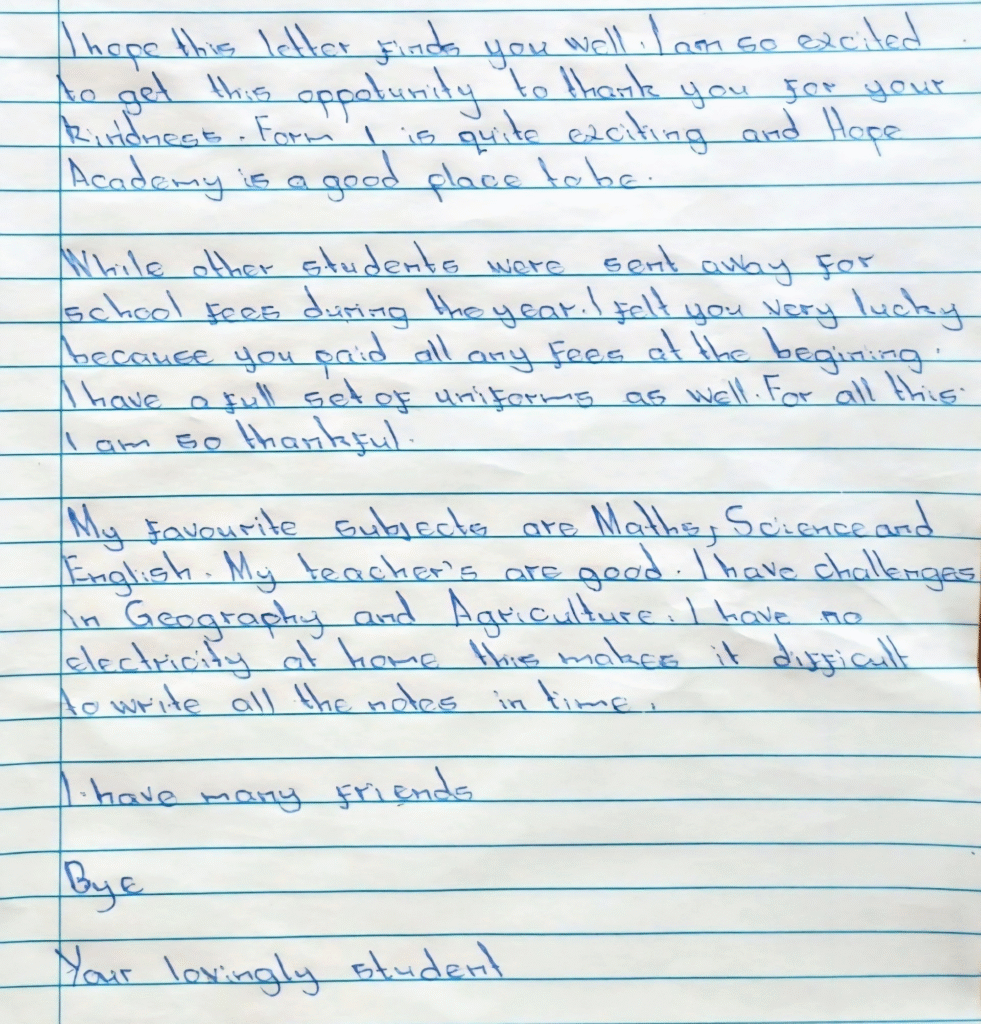 I hope this letter finds you well. I am so excited
to get this oppotunity to thank you for your
kindness. Form 1 is quite exciting and Hope
Academy is a good place to be.
While other students were sent away for
school fees during the year. I felt you very lucky
because you paid all any fees at the begining.
I have a full set of uniforms as well. For all this
I am so thankful.
My favourite subjects are Maths, Science and
English. My teacher's are good. I have challenges
in Geography and Agriculture. I have no
electricity at home this makes it difficult
to write all the notes in time.
I have many friends
Bye
Your lovingly student